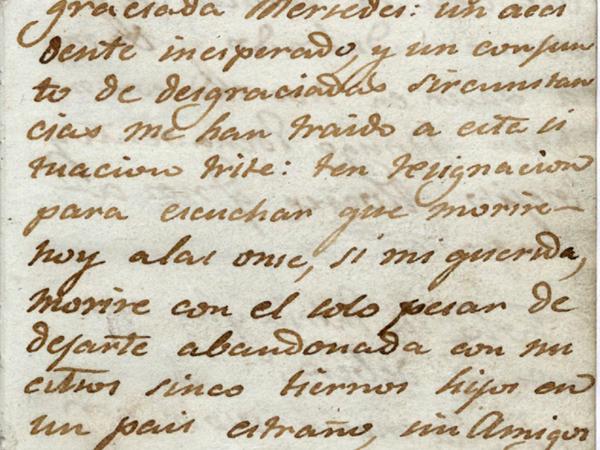 graciada Mersedes: un acci
dente inesperado, y un conjun
to de desgraciadas sircunstan
cias me han traido a esta si
tuacion triste: ten resignacion
para escuchar que morire
hoy alas onse, si mi querida,
morire con el solo pesar de
dejarte abandonada con nu
estros sinco tiernos hijos en
un pais estraño, sin Amigos